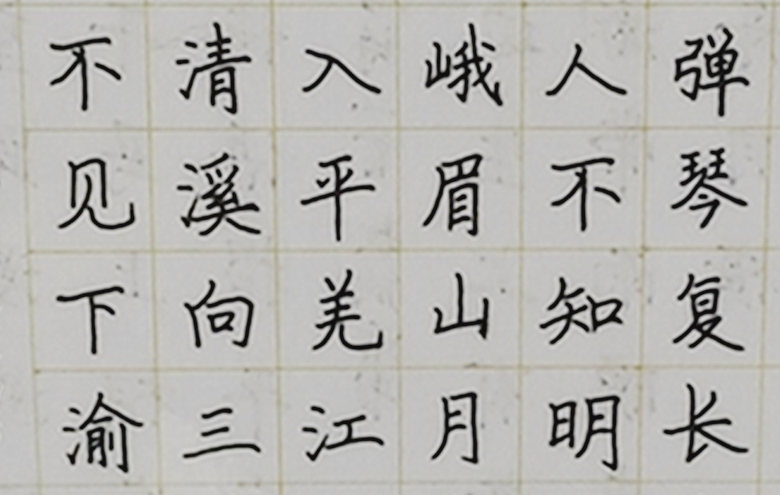 弹琴复长
人不知明
峨眉山月
入平羌江
清溪向三
不见下渝